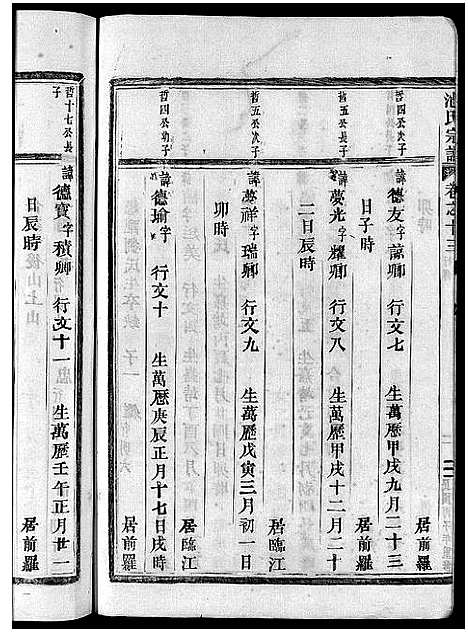 池氏宗譜
卷之十三
哲四公次子
諱德友字諒卿 行文七 生萬曆甲戌九月二十三
日子時
哲五公長子
諱夢光字耀卿 行文八 生萬曆甲戌十二月二十
二日辰時 居臨江
哲五公次子
諱夢祥字瑞卿 行文九 生萬曆戊寅三月初一日
卯時 居臨江
哲四公幼子
諱德瑜字 行文十 生萬曆庚辰正月十七日戌時
居前羅
哲十七公長
子
諱德寶字積卿 行文十一 生萬曆壬午正月廿一
日辰時 居前羅